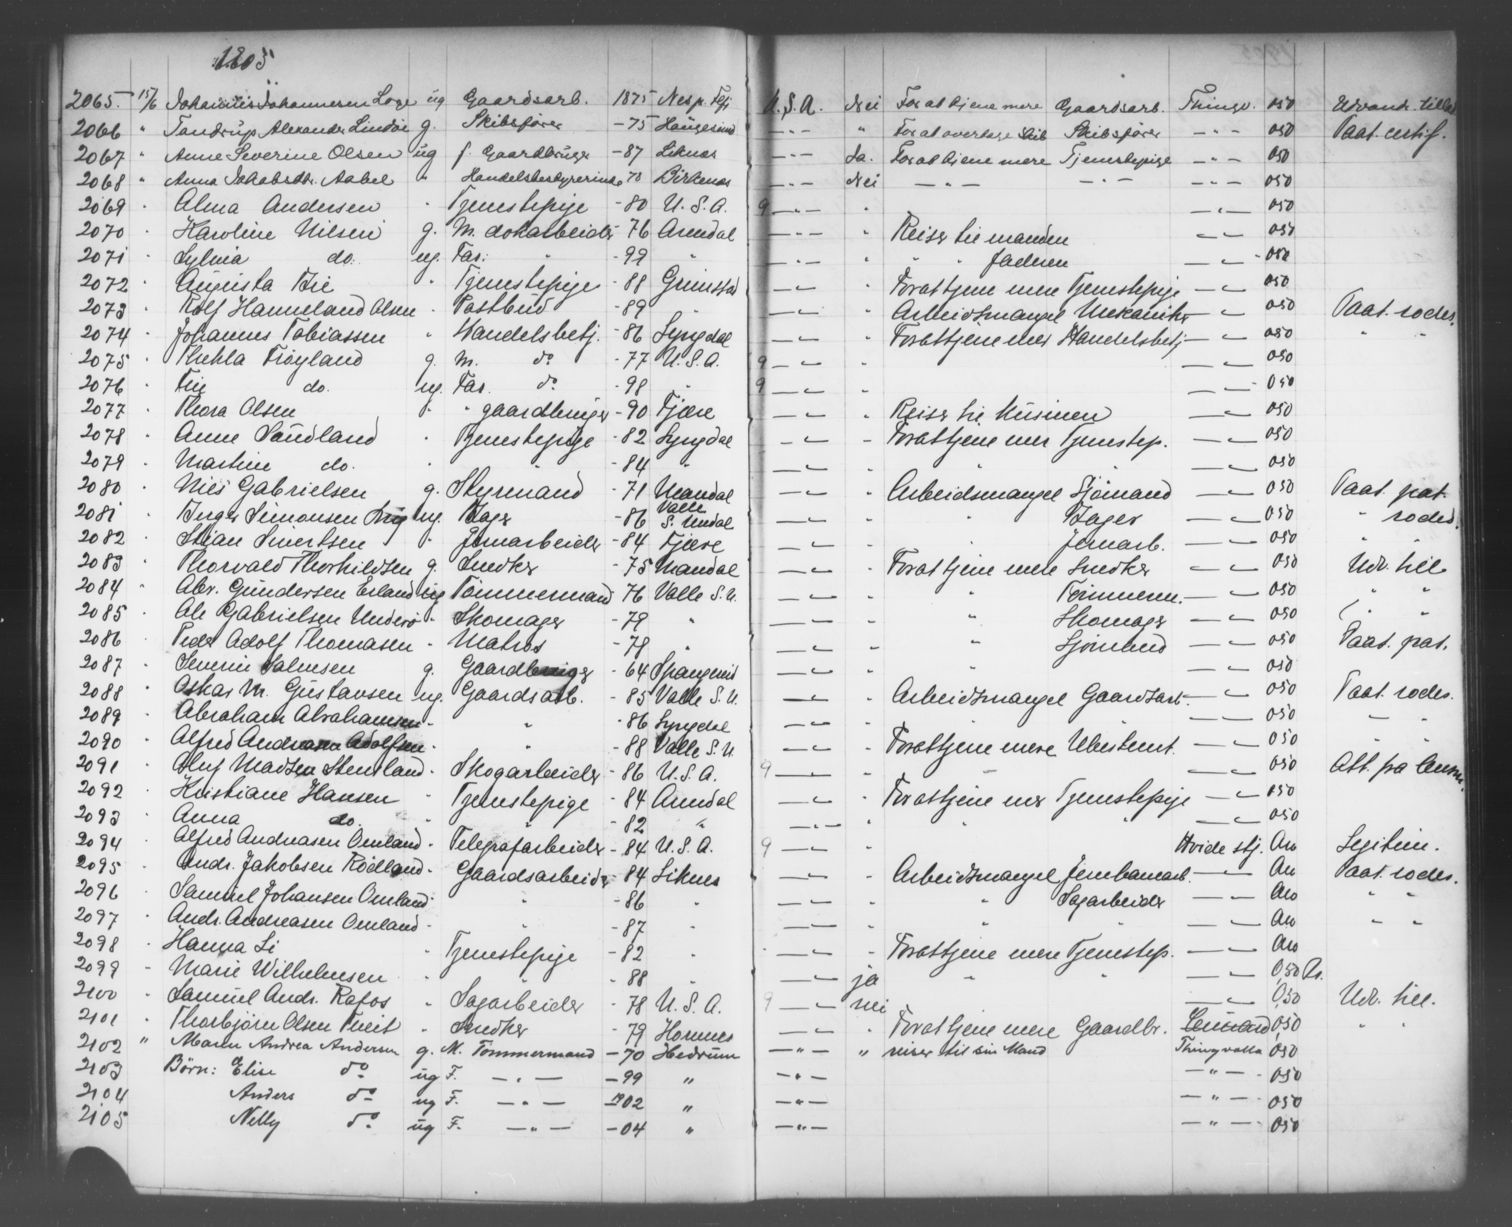 1905
2065. 15/6 Johannes Johannesen Loge ug Gaardsarb. 1875 Nesp. Fgj U.S.A. Nei For at tjene mere Gaardsarb. Thingv. 050 Udvandr. tillad
2066 " Tandrup Alexander Lindøe g. Skibsfører -75 Haugesund -"- " For at overtage Skib Skibsfører -"- 050 Paat. certif.
2067 " Anne Severine Olsen ug f. Gaardbruger -87 Liknes -"- Ja. For at tjene mere Tjenestepige -"- 050
2068 " Anna Jakobsdtr. Aabel " Handelsbestyrerinde 73 Birkenes -"- Nei -"- -"- -"- 050
2069 " Alma Andersen " Tjenestepige -80 U.S.A. 9 -"- " -"- 050
2070 " Karoline Nilsen g. M. dokarbeider -76 Arendal -"- " Reiser til manden -"- 050
2071 " Sylvia do. ug. Far. " -99 " -"- " " " faderen -"- 050
2072 " Augusta Bie " Tjenestepige -88 Grimstad -"- " For at tjene mere Tjenestepige -"- 050
2073 " Rolf Hanneland Olsen " Postbud -89 " -"- " Arbeidsmangel Mekaniker -"- 050 Paat. rodes.
2074 " Johannes Tobiassen " Handelsbetj. -86 Lyngdal -"- " For at tjene mer Handelsbetj. -"- 050 " "
2075 " Thekla Frøyland g. M. do -77 U.S.A. 9 -"- " -"- 050
2076 " do. ug. Far. do -98 " 9 -"- " -"- 050
2077 " Thora Olsen " " gaardbruger -90 Fjære -"- " Reiser til kusinen -"- 050
2078 " Anne Sandland " Tjenestepige -82 Lyngdal -"- " For at tjene mer Tjenestep. -"- 050
2079 " Martine do. " " -84 " -"- " " " -"- 050
2080 " Nils Gabrielsen g. Styrmand -71 Mandal -"- " Arbeidsmangel Sjømand -"- 050 Paat. pat.
2081 " Berger Simonsen ug. Bager -86 Valle S. Undal -"- " " Bager -"- 050 " rodes.
2082 " Stian Sivertsen " Jernarbeider -84 Fjære -"- " " Jernarb. -"- 050 " "
2083 " Thorvald Thorkildsen g. Snedker -75 Mandal -"- " For at tjene mere Snedker -"- 050 Udv. till.
2084 " Abr. Gundersen Erland ug Tømmermand -76 Valle S.U. -"- " " Tømmerm. -"- 050 " "
2085 " Ole Gabrielsen Underø " Skomager -79 " -"- " " Skomager -"- 050 " "
2086 " Peder Adolf Thomasen " Matros -78 " -"- " " Sjømand -"- 050 Paat. pat.
2087 " Severin Salvesen g. Gaardbruger -64 Spangereid -"- " " " -"- 050
2088 " Oskar M. Gustavsen ug. Gaardsarb. -85 Valle S.U. -"- " Arbeidsmangel Gaardsarb. -"- 050 Paat. rodes.
2089 " Abraham Abrahamsen " " -86 Lyngdal -"- " " " -"- 050 " "
2090 " Alfred Andreasen Adolfsen " " -88 Valle S.U. -"- " For at tjene mere Ubestemt. -"- 050 " "
2091 " Oluf Madsen Stensland " Skogarbeider -86 U.S.A. 9 -"- " -"- 050 Att. fra
2092 " Kristiane Hansen " Tjenestepige -84 Arendal -"- " For at tjene mer Tjenestepige -"- 050
2093 " Anna do. " " -82 " -"- " " " -"- 050
2094 " Alfred Andreasen Omland " Telegrafarbeider -84 U.S.A. 9 -"- " Hvide stj. Aro Legitim.
2095 " Andr. Jakobsen Rødland " Gaardsarbeider -84 Liknes -"- " Arbeidsmangel Jernbanearb. -"- Aro Paat. rodes.
2096 " Samuel Johansen Omland " " -86 " -"- " " Sagarbeider -"- Aro " "
2097 " Andr. Andreasen Omland " " -87 " -"- " " " -"- Aro " "
2098 " Hanna Li " Tjenestepige -82 " -"- " For at tjene mere Tjenestep. -"- Aro
2099 " Marie Wilhelmsen " " -88 " -"- ja " " -"- 0,50
2100 " Samuel Andr. Rafos " Sagarbeider -78 U.S.A. 9 -"- nei -"- 050 Udv. till.
2101 " Thorbjørn Olsen Tveit " Snedker -79 Hornnes -"- " For at tjene mere Gaardbr. 050 " "
2102 " Maren Andrea Andersen g. M. Tømmermand -70 Hedrum -"- " reiser til sin Mand Thingvalla 050
2103 Børn: Elise do ug F. -"- -99 " -"- -"- 050
2104 Anders do ug F. -"- -1902 " -"- -"- 050
2105 Nelly do ug F. -"- -04 " -"- -"- 050